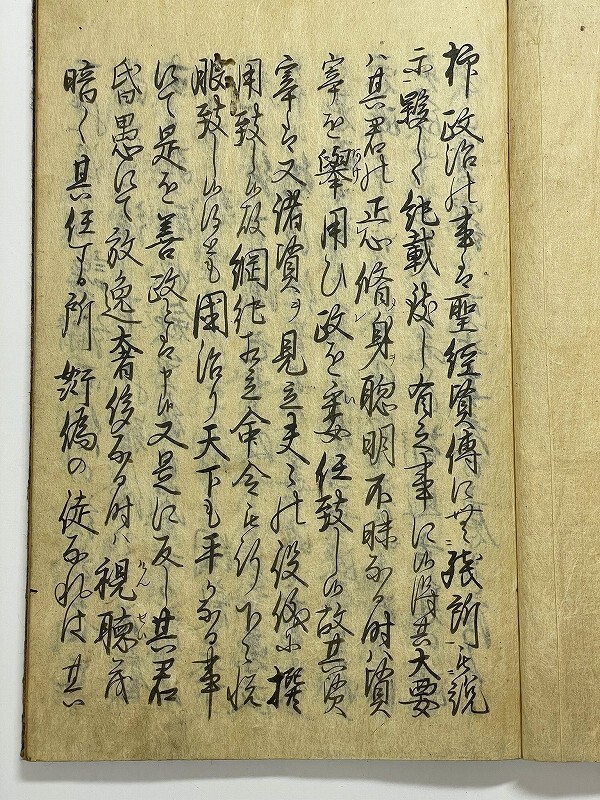 抑政治の事は聖経賢傳に無残所も説
示戡しく純載致し有之事に候得共大要
ハ其君の正心脩身聡明不昧なる時ハ賢
宰を擧用ひ政を委任致し候故其賢
宰は又諸賢を見立夫々の役儀に撰
用致し候故綱紀相立命令も行下々悦
服致し候得は国治り天下も平かなる事
にて是を善政とは申候又是に反し其君
昏愚にて放逸奢侈なる時ハ視聴茂
暗く其任する所奸偽の徒なれは其